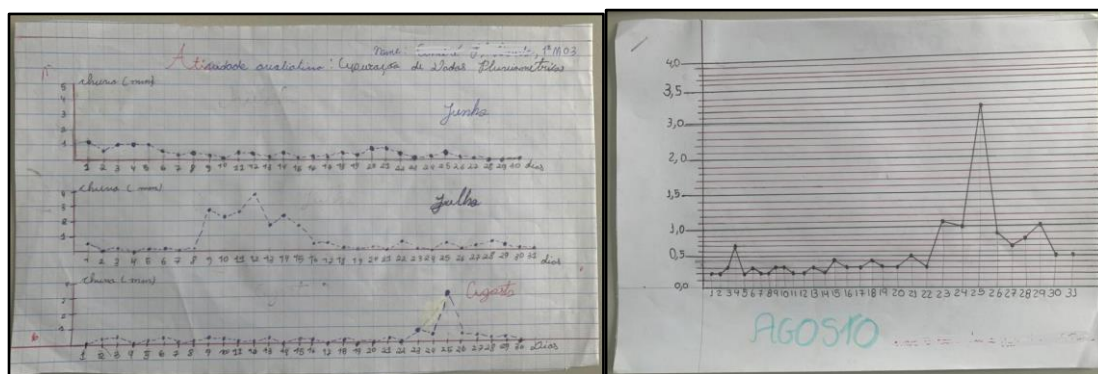 Nome: 1º M03
Atividade avaliativa: Apuração de Dados Pluviométricos
chuva (mm)
5
4
3
2
1
Junho
1 2 3 4 5 6 7 8 9 10 11 12 13 14 15 16 17 18 19 20 21 22 23 24 25 26 27 28 29 30 dias
chuva (mm)
4
3
2
1
Julho
1 2 3 4 5 6 7 8 9 10 11 12 13 14 15 16 17 18 19 20 21 22 23 24 25 26 27 28 29 30 31 dias
chuva (mm)
4
3
2
1
Agosto
1 2 3 4 5 6 7 8 9 10 11 12 13 14 15 16 17 18 19 20 21 22 23 24 25 26 27 28 29 30 Dias
4,0
3,5
3,0
2,0
1,5
1,0
0,5
0,0
1 2 3 4 5 6 7 8 9 10 11 12 13 14 15 16 17 18 19 20 21 22 23 24 25 26 27 28 29 30 31
AGOSTO